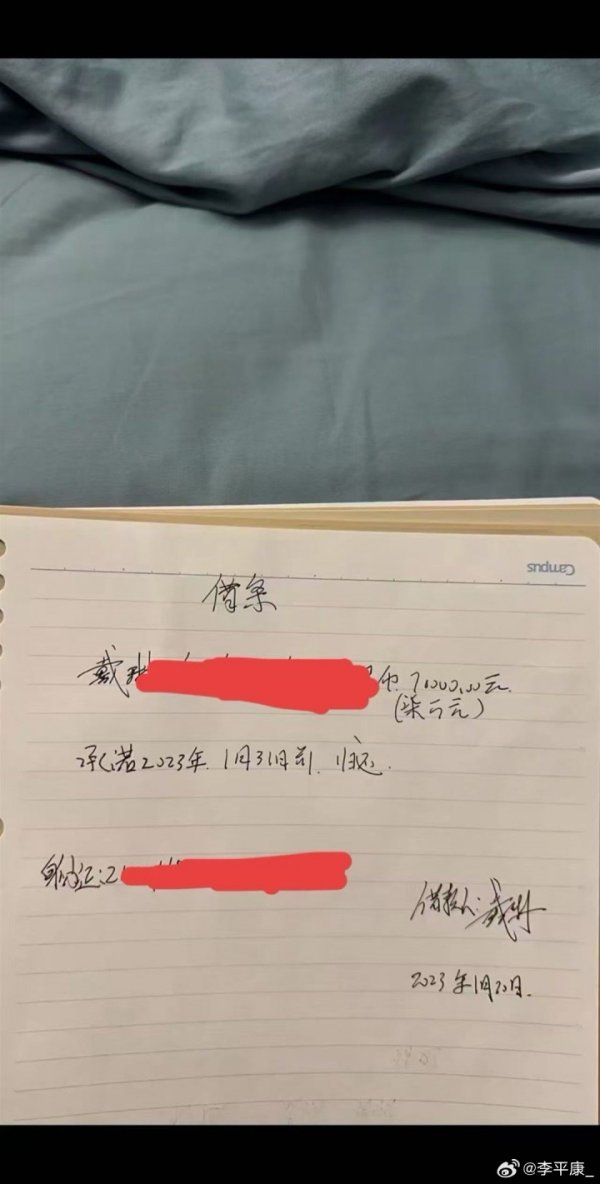 Campus
借条
戴琳 币 元.
(柒万元)
承诺2023年.1月31日前.归还.
身份证:2
借款人:戴琳
2023年1月20日.
@李平康_